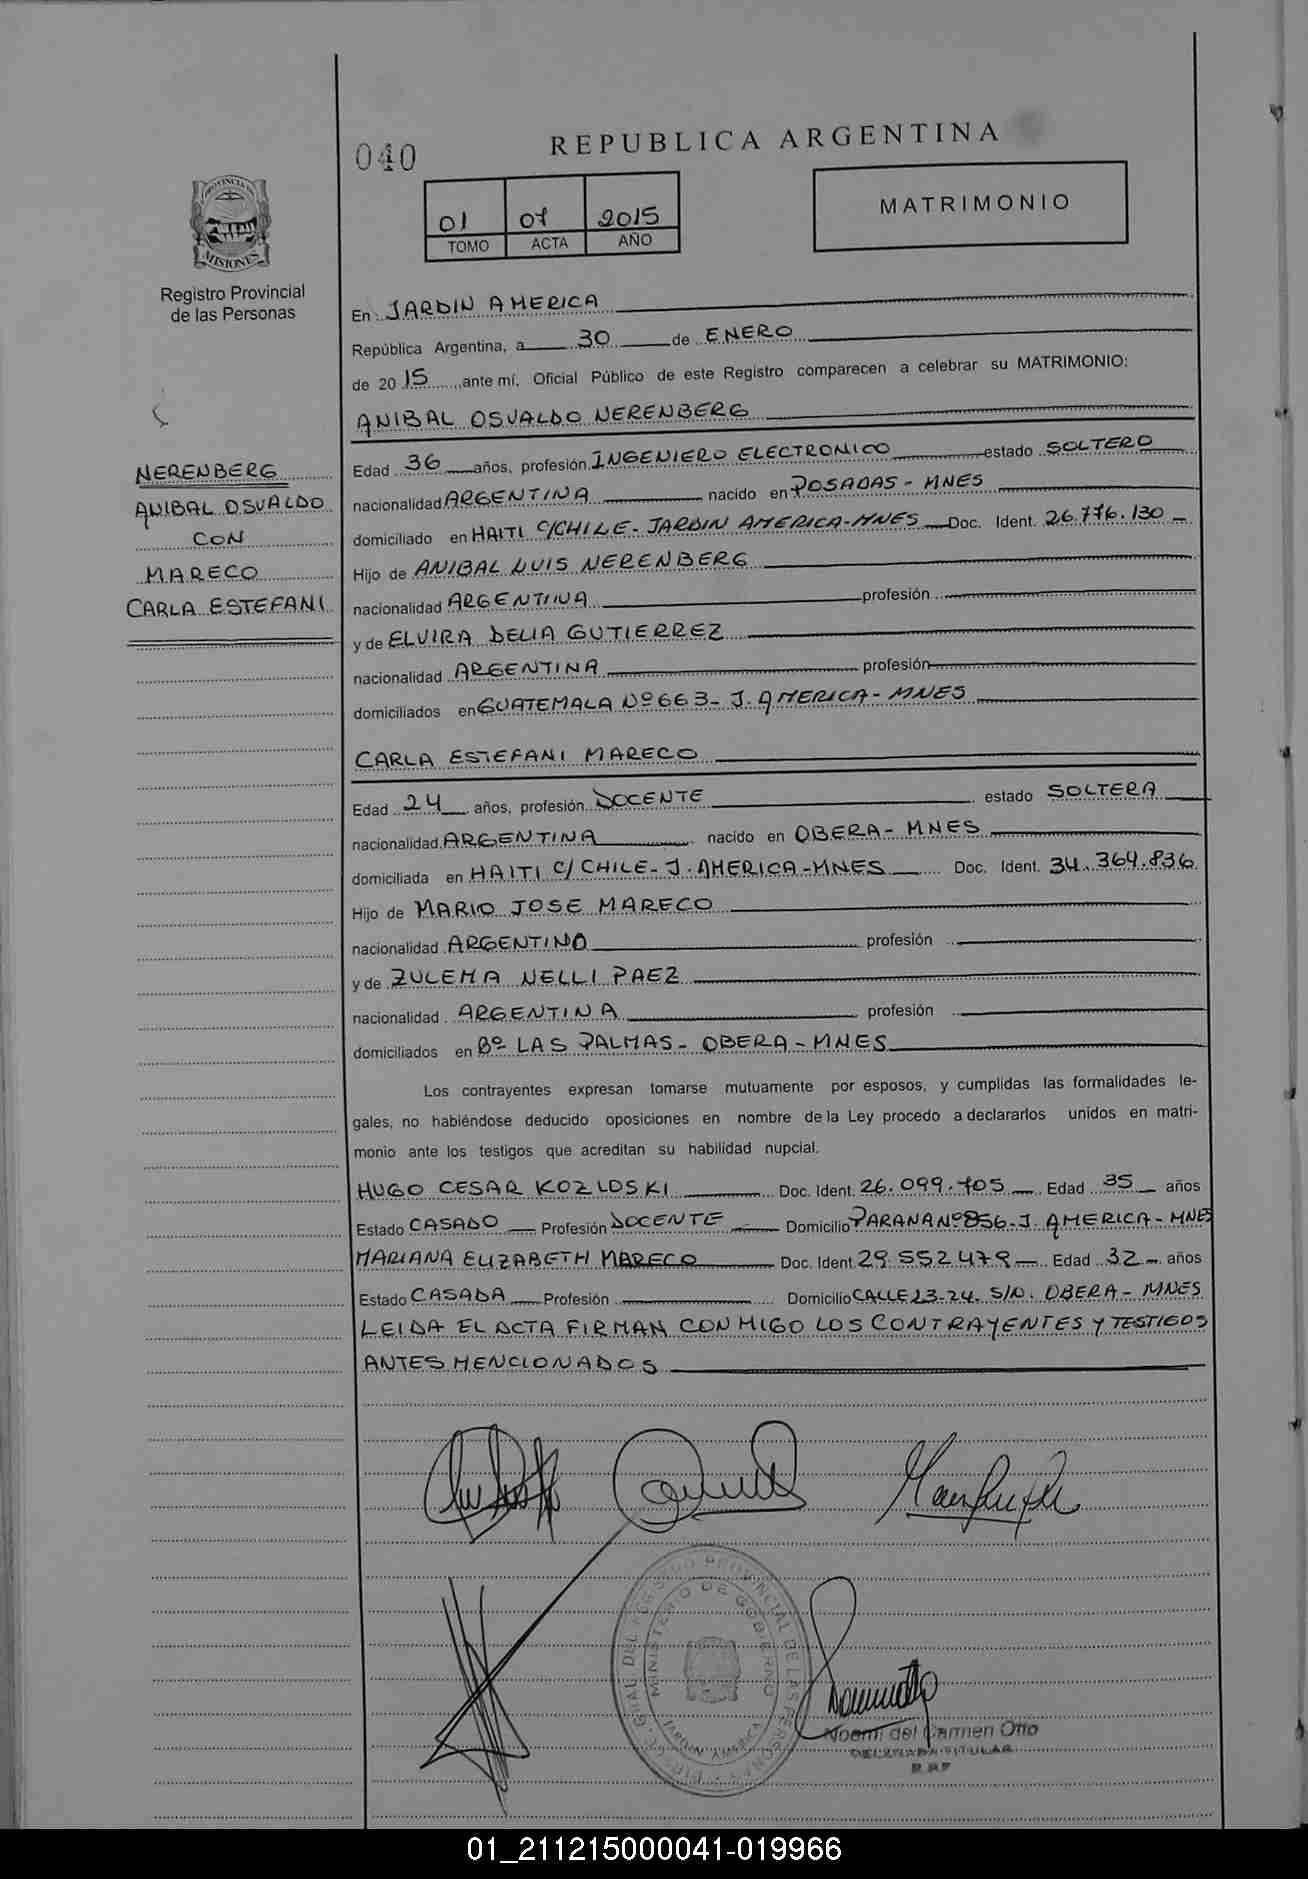 040
REPUBLICA ARGENTINA
01 07 2015
TOMO ACTA AÑO
MATRIMONIO
PROVINCIA DE
MISIONES
Registro Provincial
de las Personas
En JARDIN AMERICA
República Argentina, a 30 de ENERO
de 2015 ante mí, Oficial Público de este Registro comparecen a celebrar su MATRIMONIO:
ANIBAL OSVALDO NERENBERG
NERENBERG
ANIBAL OSVALDO
CON
MARECO
CARLA ESTEFANI
Edad 36 años, profesión INGENIERO ELECTRONICO estado SOLTERO
nacionalidad ARGENTINA nacido en POSADAS - MNES
domiciliado en HAITI C/CHILE - JARDIN AMERICA-MNES Doc. Ident. 26.776.130
Hijo de ANIBAL LUIS NERENBERG
nacionalidad ARGENTINA profesión
y de ELVIRA DELIA GUTIERREZ
nacionalidad ARGENTINA profesión
domiciliados en GUATEMALA Nº 663 - J. AMERICA - MNES
CARLA ESTEFANI MARECO
Edad 24 años, profesión DOCENTE estado SOLTERA
nacionalidad ARGENTINA nacido en OBERA - MNES
domiciliada en HAITI C/ CHILE - J. AMERICA - MNES Doc. Ident. 34.364.836
Hijo de MARIO JOSE MARECO
nacionalidad ARGENTINO profesión
y de ZULEMA NELLI PAEZ
nacionalidad ARGENTINA profesión
domiciliados en Bº LAS PALMAS - OBERA - MNES
Los contrayentes expresan tomarse mutuamente por esposos, y cumplidas las formalidades le-
gales, no habiéndose deducido oposiciones en nombre de la Ley procedo a declararlos unidos en matri-
monio ante los testigos que acreditan su habilidad nupcial.
HUGO CESAR KOZLOSKI Doc. Ident. 26.099.705 Edad 35 años
Estado CASADO Profesión DOCENTE Domicilio PARANA Nº 856 - J. AMERICA - MNES
MARIANA ELIZABETH MARECO Doc. Ident 29.552.479 Edad 32 años
Estado CASADA Profesión Domicilio CALLE 23-24 S/N. OBERA - MNES
LEIDA EL ACTA FIRMAN CONMIGO LOS CONTRAYENTES Y TESTIGOS
ANTES MENCIONADOS
GRAL. DEL REGISTRO PROVINCIAL DE LAS PERSONAS
MINISTERIO DE GOBIERNO
JARDIN AMERICA
Noemi del Carmen Otto
DELEGADA TITULAR
01_211215000041-019966